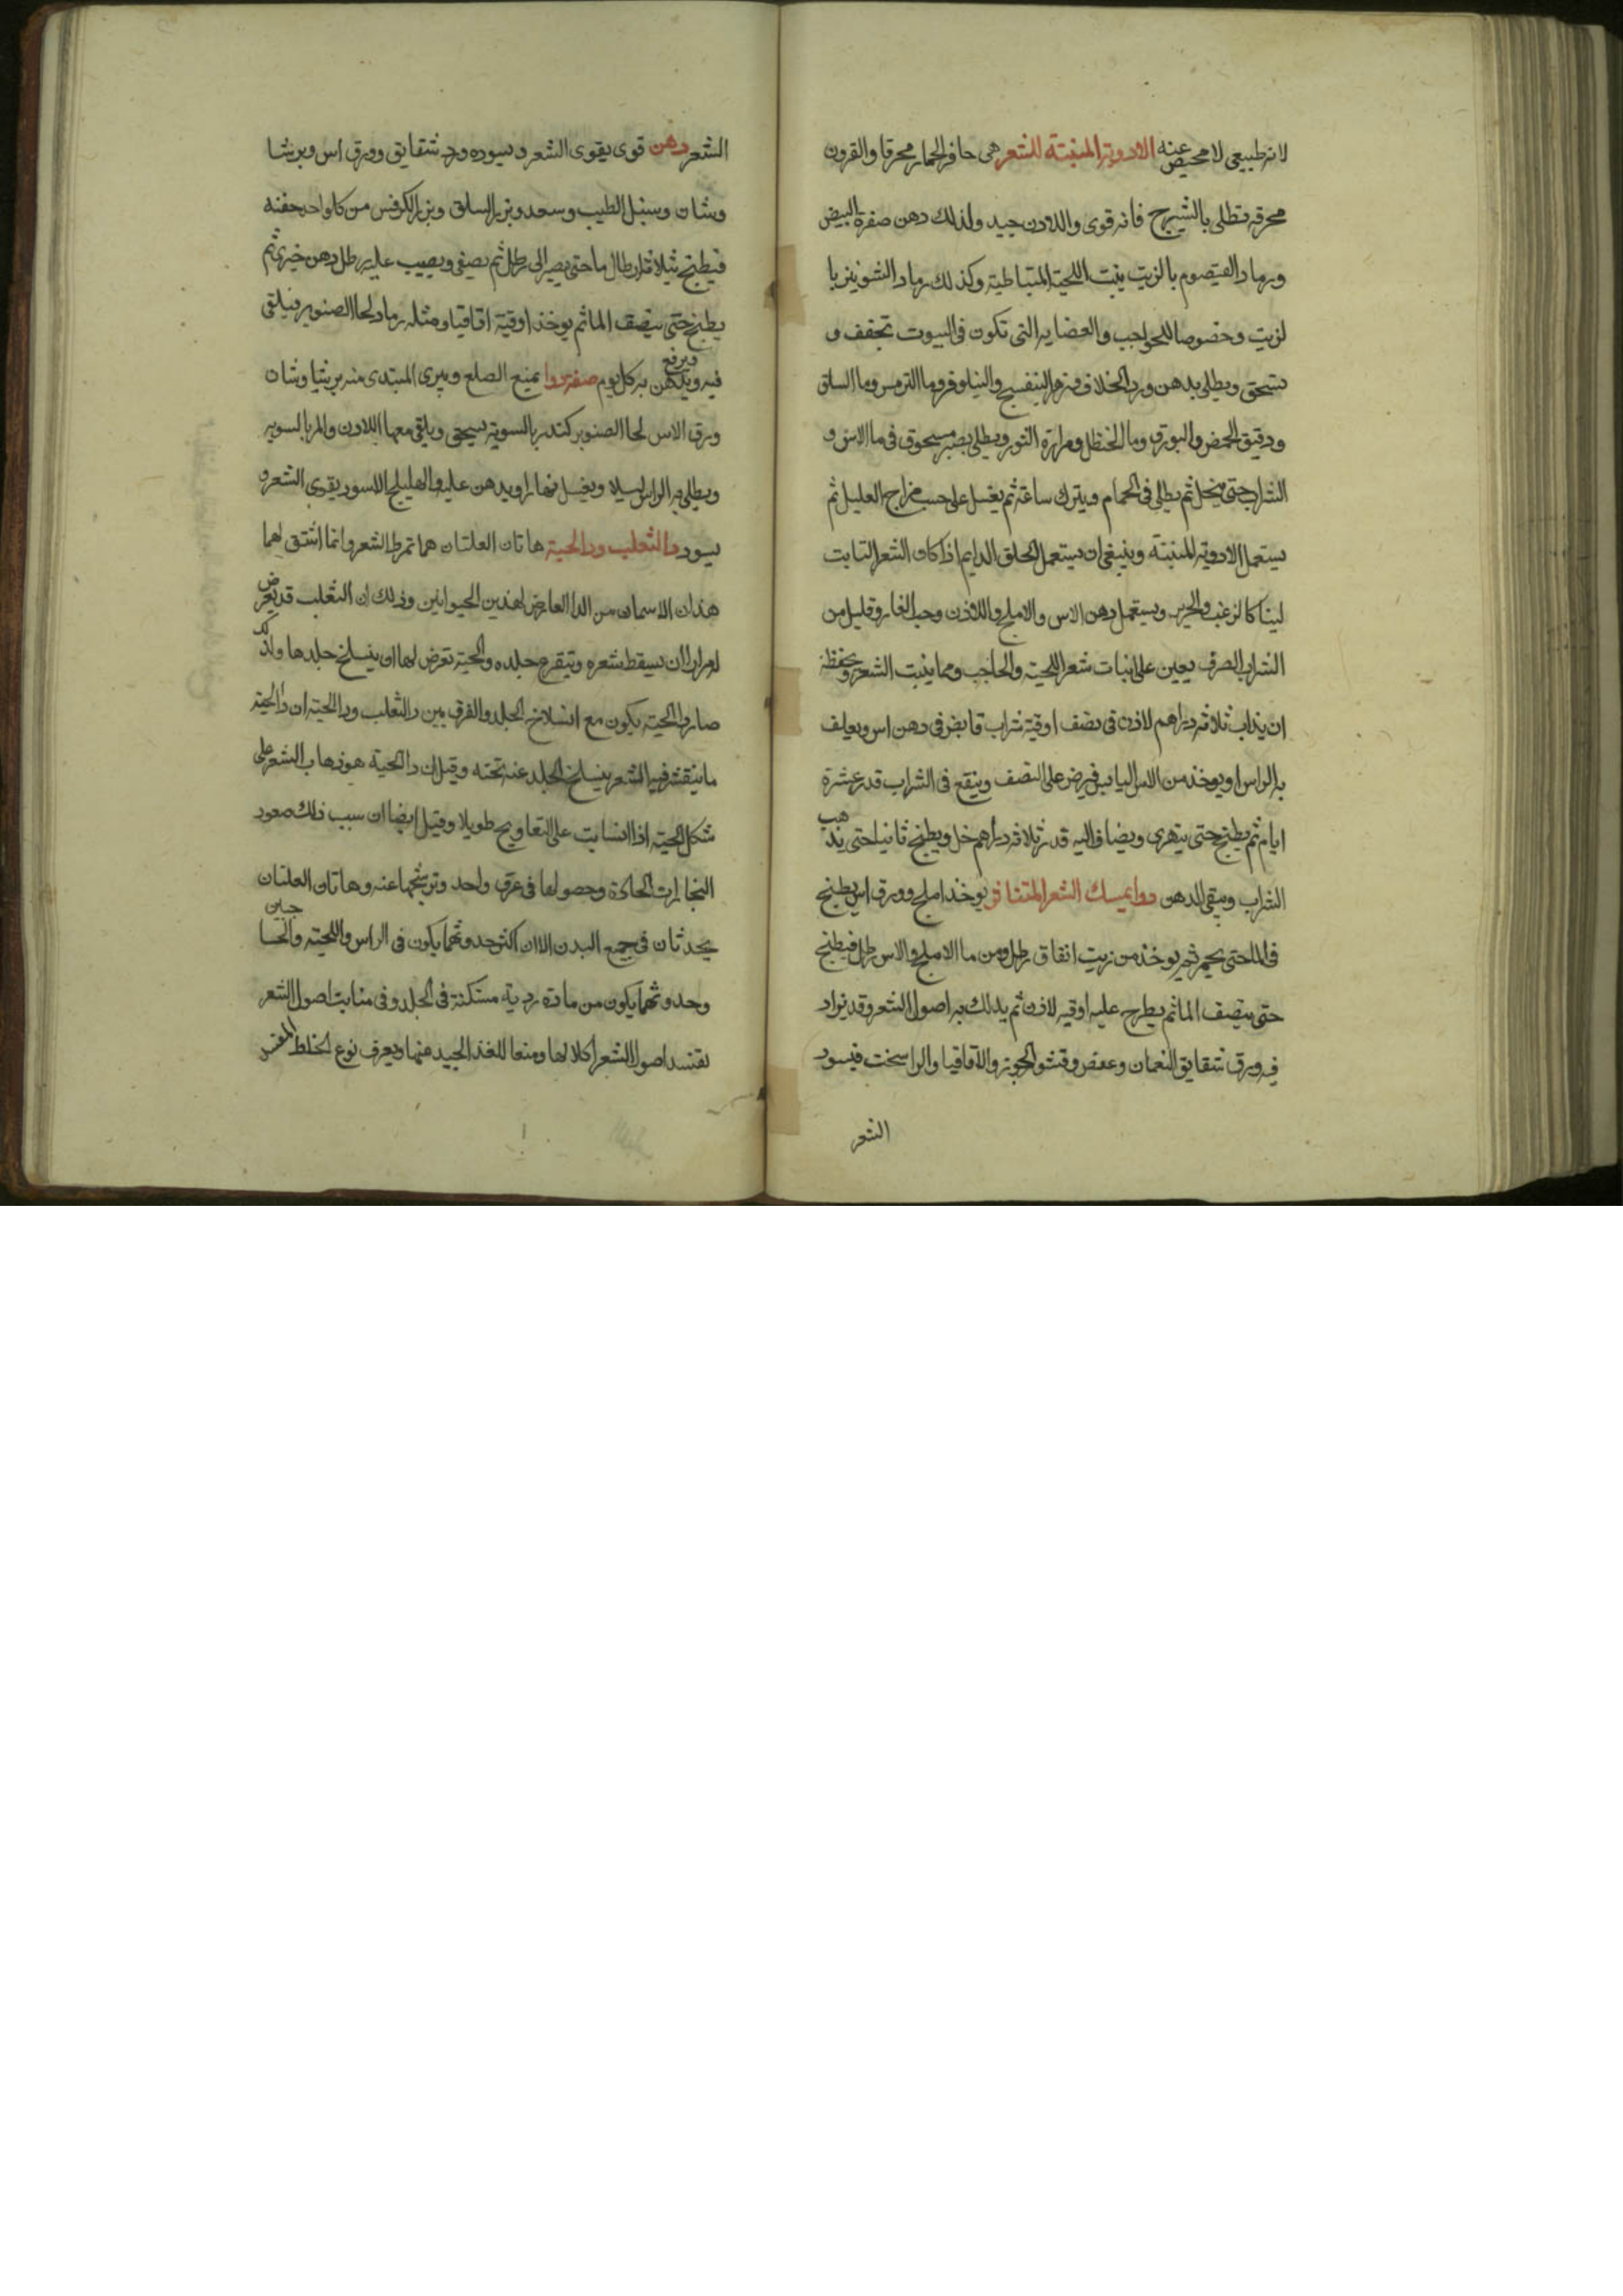 لانه طبيعى لا محيص عنه الادوية المنبتة للشعر هى حافر الحمار محرقا والقرون
محرقه تطلى بالشيرج فانه قوى واللادن جيد ولذلك دهن صفرة البيض
ورماد القيصوم بالزيت ينبت اللحية المتباطية وكذلك رماد الشونيز با
لزيت وخصوصا للحواجب والعضايه التى تكون فى البيوت تجفف و
تسحق ويطلى بدهن ورد الخلاف وزهر البنفسج والنيلوفر وما الترمس وما السلق
ودقيق الحمص والبورق وما الحنظل ومرارة الثور ويطلى بصبر مسحوق فى ما الاس و
الشراب حتى ينحل ثم يطلى فى الحمام ويترك ساعة ثم يغسل على حسب مزاج العليل ثم
يستعمل الادوية المنبتة وينبغى ان يستعمل الحلق الدايم اذا كان الشعر النابت
لينا كالزغب والحرير ويستعمل دهن الاس والاملج واللاذن وحب الغار وقليل من
الشراب الصرف يعين على انبات شعر اللحية والحاجب ومما ينبت الشعر ويحفظه
ان يذاب ثلاثه دراهم لاذن فى نصف اوقية شراب قابض فى دهن اس ويعلف
به الراس او يوخذ من الاس اليابس فيرض على النصف وينقع فى الشراب قدر عشرة
ايام ثم يطبخ حتى يتهرى ويضاف اليه قدر ثلاثه دراهم خل ويطبخ ثانيا حتى يذهب
الشراب ويبقى الدهن دوا يمسك الشعر المتناثر يوخذ املج وورق اس يطبخ
فى الما حتى يحمر ثم يوخذ من زيت انفاق رطل ومن ما الاملج والاس رطل فيطبخ
حتى ينصف الما ثم يطرح عليه اوقيه لاذن ثم يدلك به اصول الشعر وقد يزاد
فيه ورق شقايق النعمان وعفص وقشور الجوز والاقاقيا والراسخت فيسود
الشعر
الشعر دهن قوى يقوى الشعر ويسوده ورد شقايق وورق اس وبرشيا
وشان وسنبل الطيب وسعد وبزر السلق وبزر الكرفس من كل واحد حفنه
فيطبخ بثلاثة ارطال ما حتى يصير الى رطل ثم يصفى ويصب عليه رطل دهن خيرى ثم
يطبخ حتى ينصف الما ثم يوخذ اوقية اقاقيا ومثله رماد لحا الصنوبر فيلقى
فيه ويرفع ويدهن به كل يوم صفة دوا يمنع الصلع ويبرى المبتدى منه برشيا وشان
ورق الاس لحا الصنوبر كندر بالسوية يسحق ويلقى معها اللادن والمر بالسويه
ويطلى به الراس ليلا ويغسل نهارا ويدهن عليه والهليلج الاسود يقوى الشعر و
يسود دا الثعلب ودا الحية هاتان العلتان هما تمرط الشعر وانما اشتق لهما
هذان الاسمان من الدا العارض لهذين الحيوانين وذلك ان الثعلب قد يعرض
له مرارا ان يسقط شعره ويتقرح جلده والحية تعرض لها ان ينسلخ جلدها ولذلك
صار دا الحية يكون مع انسلاخ الجلد والفرق بين دا الثعلب ودا الحية ان دا الحية
ما ينقشر فيه الشعر ينسلخ الجلد عنه تحته وقيل ان دا الحية هو ذهاب الشعر على
شكل الحية اذا انسابت على التعاويج طويلا وقيل ايضا ان سبب ذلك صعود
البخارات الحادة وحصولها فى عرق واحد وترشحها عنه وهاتان العلتان
يحدثان فى جميع البدن الا ان اكثر حدوثهما يكون فى الراس واللحية والحاجبين
وحدوثهما يكون من مادة ردية مستكنة فى الجلد وفى منابت اصول الشعر
تفسد اصول الشعر اكلا لها ومنعا للغذا الجيد منها ويعرف نوع الخلط المفسد